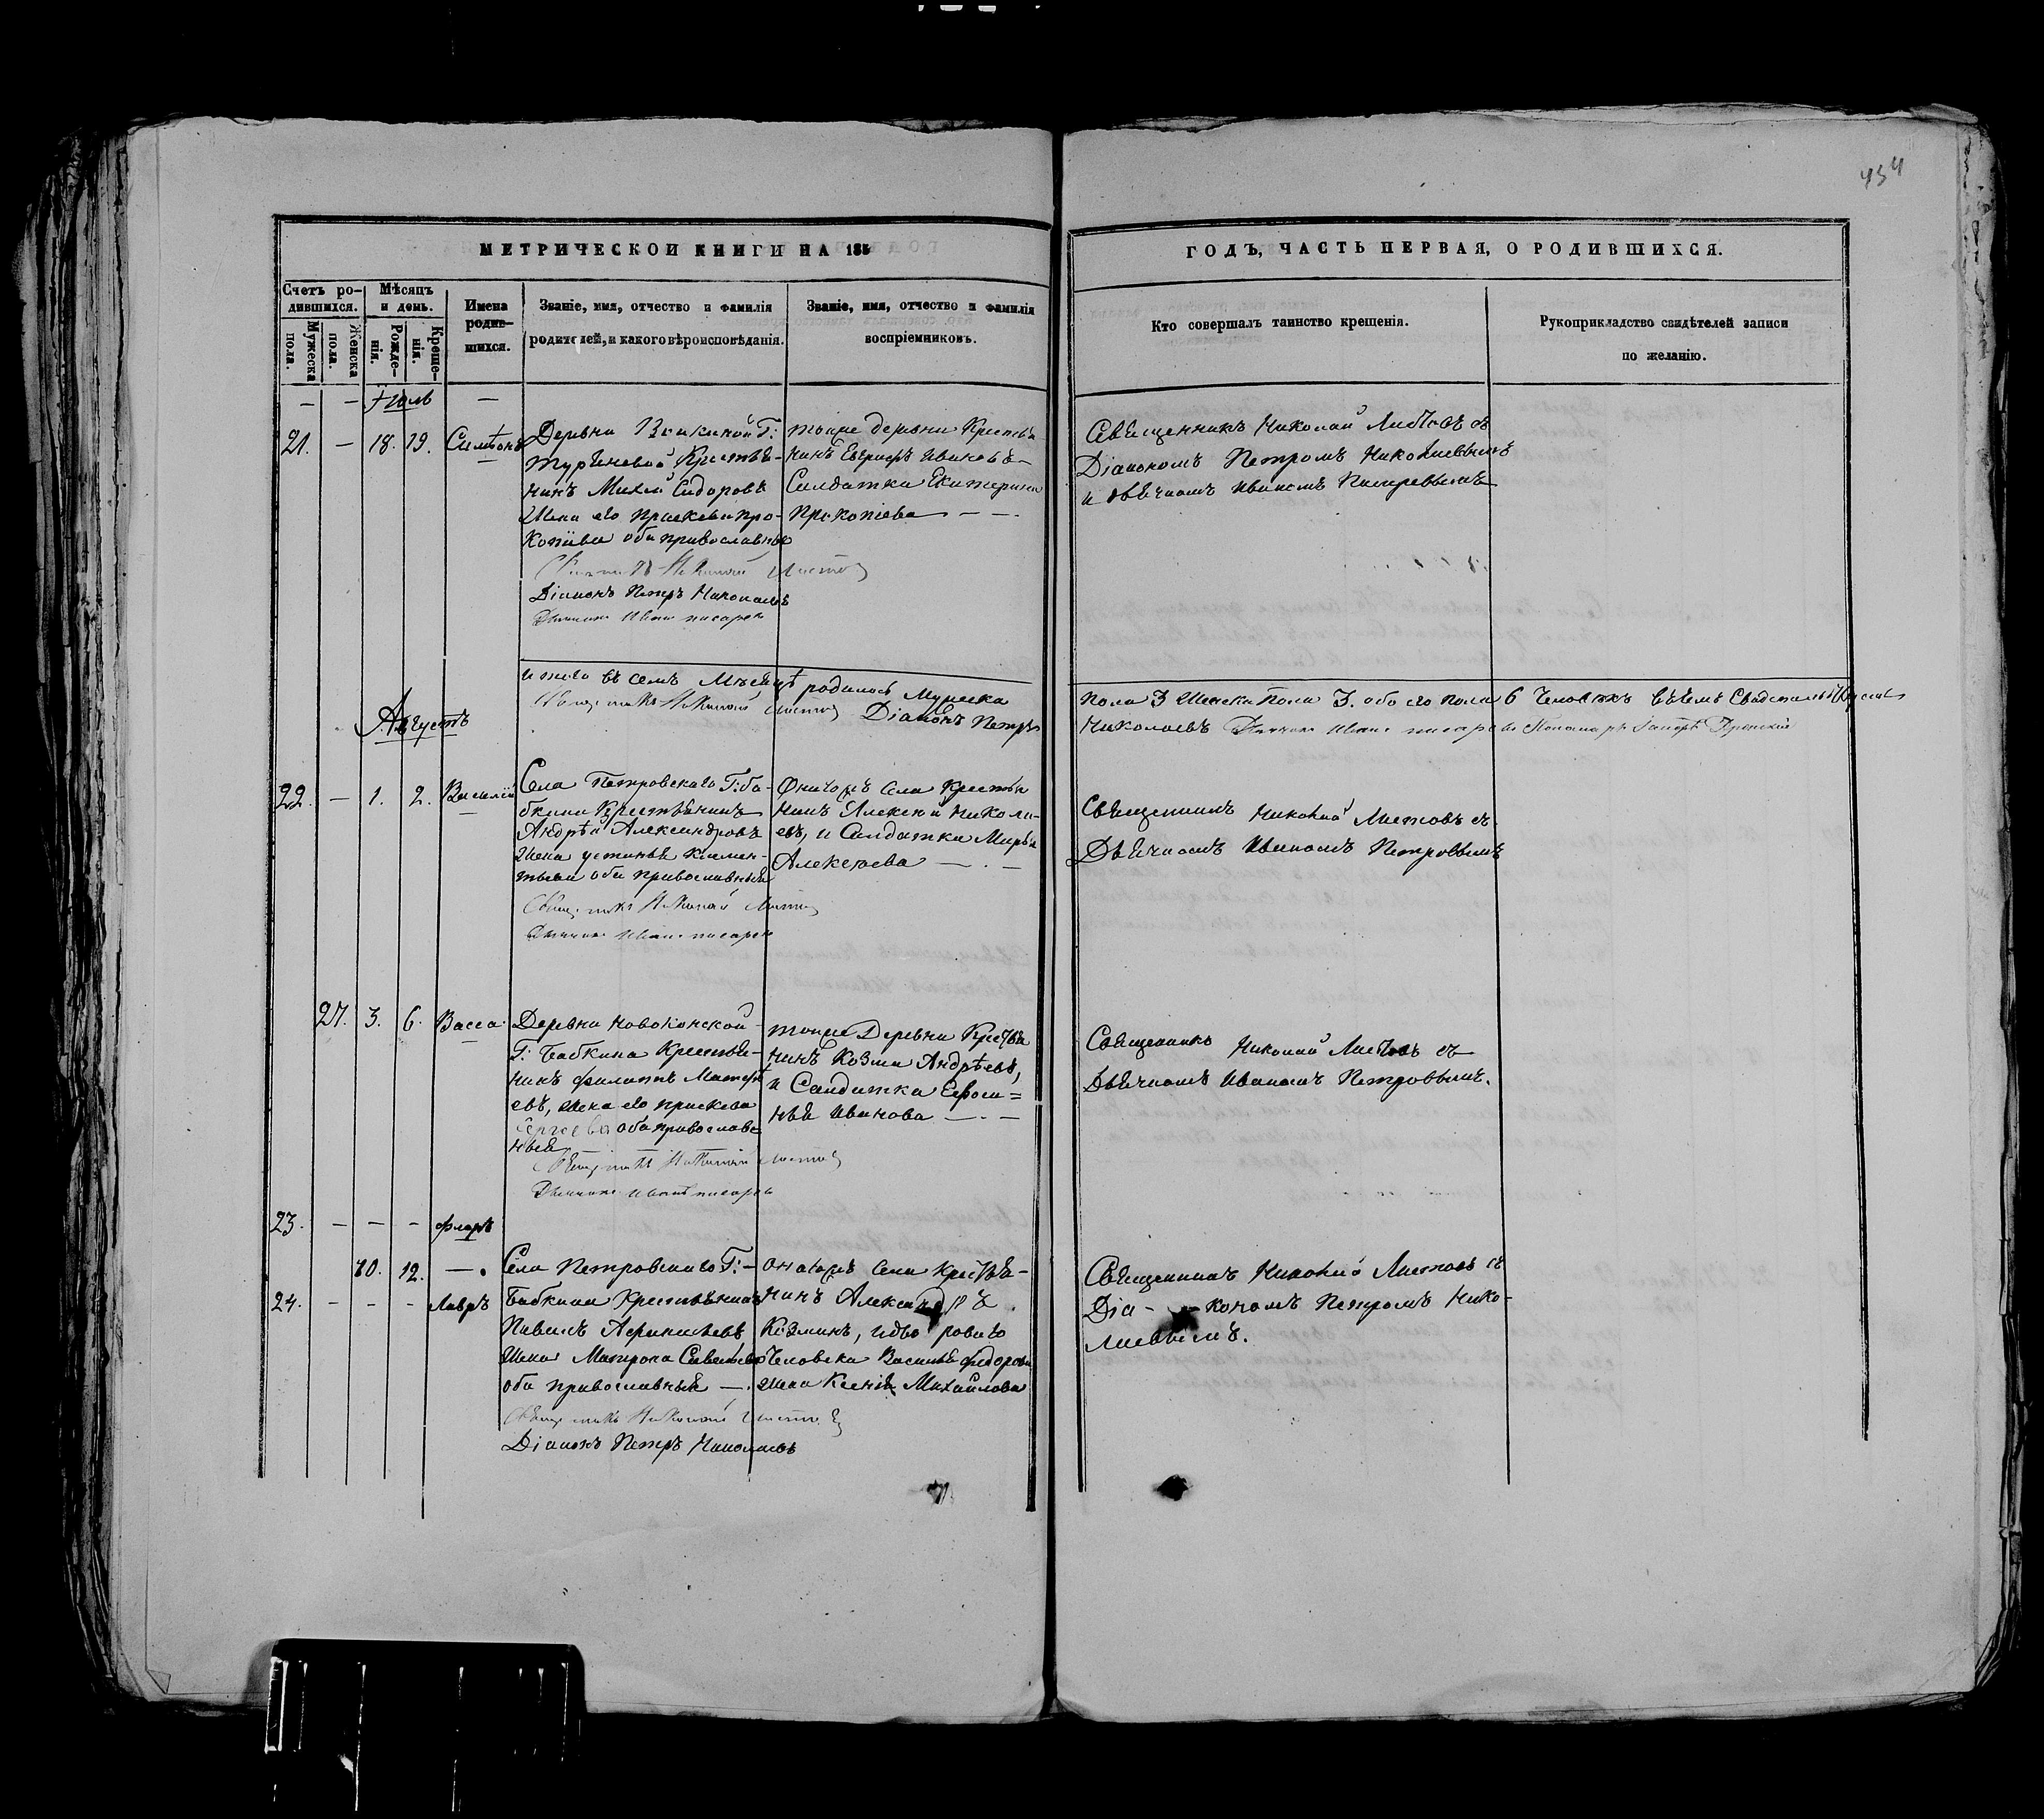 434
МЕТРИЧЕСКОЙ КНИГИ НА 185
ГОДЪ, ЧАСТЬ ПЕРВАЯ, О РОДИВШИХСЯ.
Счетъ ро-
дившихся.
Мужеска
пола.
Женска
пола.
Мѣсяцъ
и день.
Рожде-
нія.
Креще-
нія.
Имена
родив-
шихся.
Званіе, имя, отчество и фамилія
родителей, и какого вѣроисповѣданія.
Званіе, имя, отчество и фамилія
воспріемниковъ.
Кто совершалъ таинство крещенія.
Рукоприкладство свидѣтелей записи
по желанію.
— — Іюль —
21. — 18. 19. Симеонъ
Деревни Г:
Крестья-
нинъ Сидоровъ
Жена его Праскева Про-
копіева оба православные
Николай
Діаконъ Петръ Николаевъ
Иванъ Писарев
тойже деревни Крестья
нинъ Ивановъ
Солдатка Екатерина
Прокопіева — —
Священникъ Николай Листовъ съ
Діакономъ Петромъ Николаевымъ
и Иваномъ Писаревымъ
итого въ семъ Мѣсяцѣ родилось Мужеска
Николай Листов Діаконъ Петръ
пола 3 Женска пола 3. обоего пола 6 человѣкъ въ чемъ
Николаевъ Иванъ Писаревъ
Августъ
22. — 1. 2. Василій
Села Петровскаго Г: Ба-
бкина Крестьянинъ
Андрѣй Александровъ
Жена Устинья Клемен-
тьева оба православныя
Николай
Иванъ Писарев
Онагожъ села Крестья
нинъ Алексѣй Никола-
евъ, и Солдатка Марья
Алексеева — . —
Священникъ Николай Листовъ съ
Дьячкомъ Иваномъ Петровымъ
27. 3. 6. Васса
Деревни Новоконской
Г: Бабкина Крестья-
нинъ Филиппъ Матфѣ
евъ, жена его Праскева
Сергеева оба православ
ныя
Николай
Иванъ Писарев
тойже Деревни Крестья
нинъ Козма Андрѣевъ,
и Солдатка Ефоси=
нья Иванова — . —
Священникъ Николай Листовъ съ
Дьячкомъ Иваномъ Петровымъ.
23. — — — Флоръ
10. 12. — .
24. — — — Лавръ
Села Петровскаго Г: —
Бабкина Крестьянинъ
Павелъ
Жена Матрона
оба православныя — .
Николай
Діаконъ Петръ Николаевъ
онагожъ села Крестья-
нинъ Александръ
Козминъ, и двороваго
человека Василья Федорова
жена Ксенія Михайлова
Священникъ Николай Листовъ съ
Діа- кономъ Петромъ Нико-
лаевымъ.